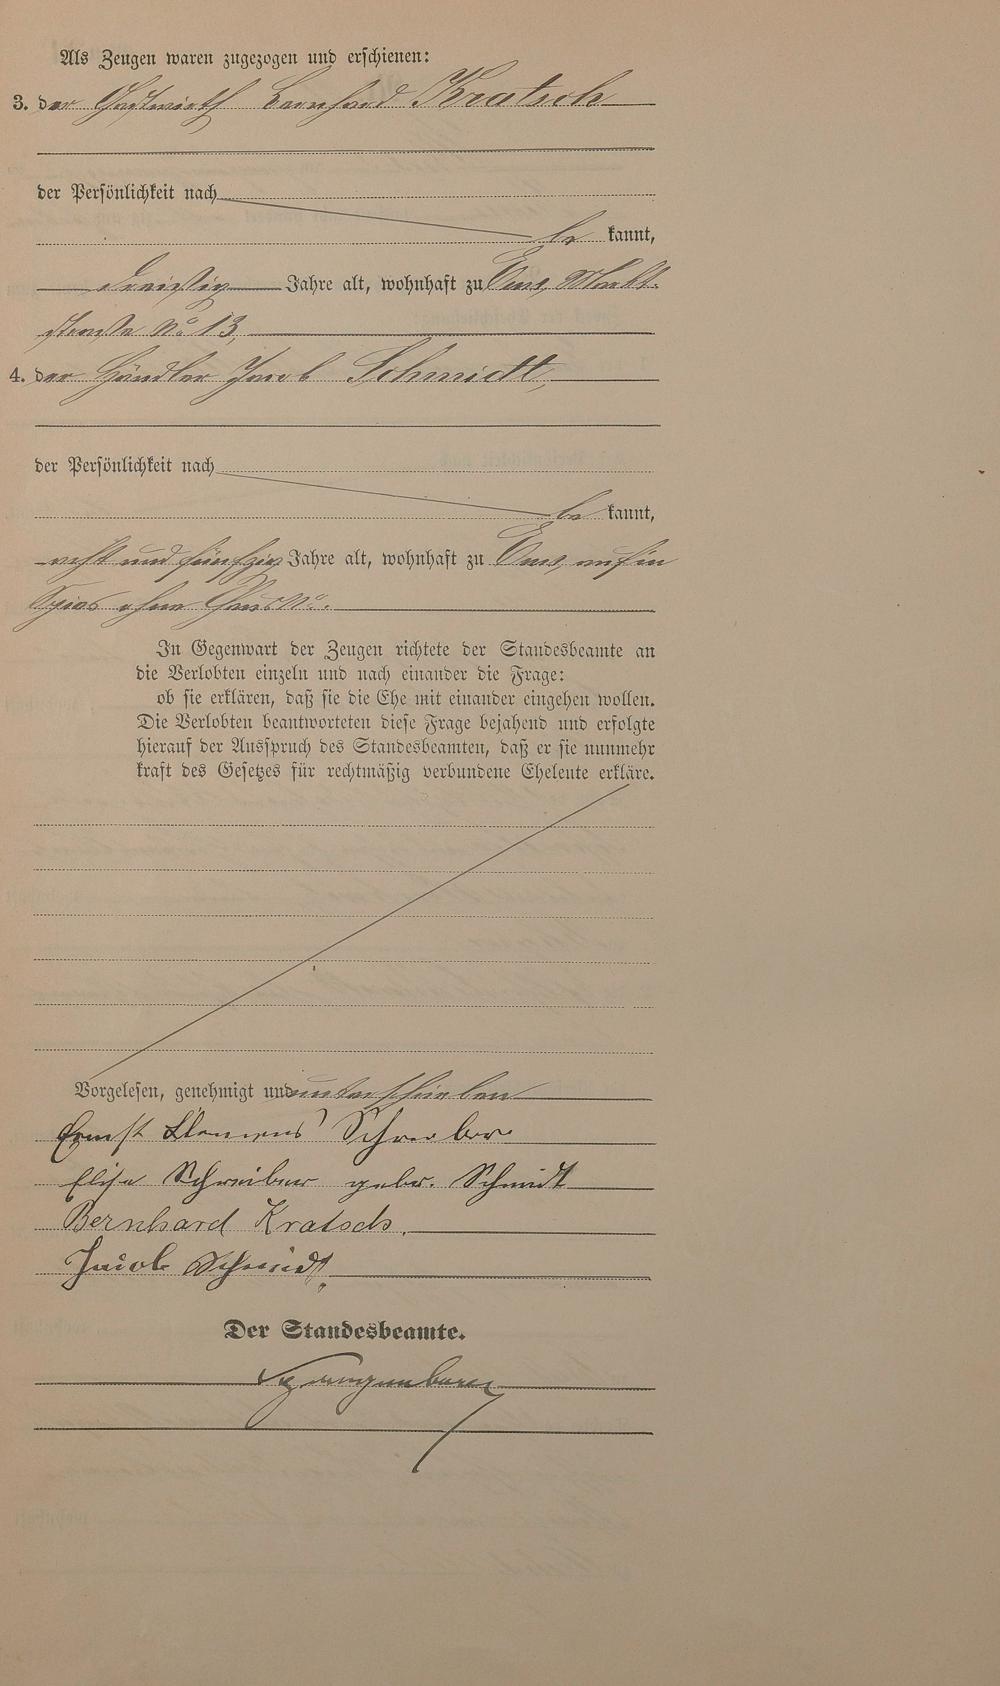 Als Zeugen waren zugezogen und erschienen:
3. der Gastwirth Bernhard Kratsch
der Persönlichkeit nach
be kannt,
dreißig Jahre alt, wohnhaft zu Ems, Markt-
straße No 13,
4. der Händler Jacob Schmidt,
der Persönlichkeit nach
be kannt,
acht und fünfzig Jahre alt, wohnhaft zu Ems, auf'm
Spies ohne Haus No.
In Gegenwart der Zeugen richtete der Standesbeamte an
die Verlobten einzeln und nach einander die Frage:
ob sie erklären, daß sie die Ehe mit einander eingehen wollen.
Die Verlobten beantworteten diese Frage bejahend und erfolgte
hierauf der Ausspruch des Standesbeamten, daß er sie nunmehr
kraft des Gesetzes für rechtmäßig verbundene Eheleute erkläre.
Vorgelesen, genehmigt und unterschrieben
Ernst Klemens Schreiber
Elise Schreiber gebr. Schmidt
Bernhard Kratsch.
Jacob Schmidt.
Der Standesbeamte.